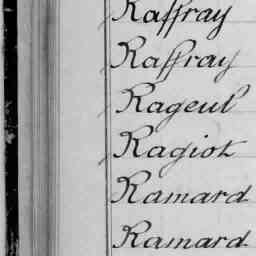 Raffray
Raffray
Rageul
Ragiot
Ramard
Ramard